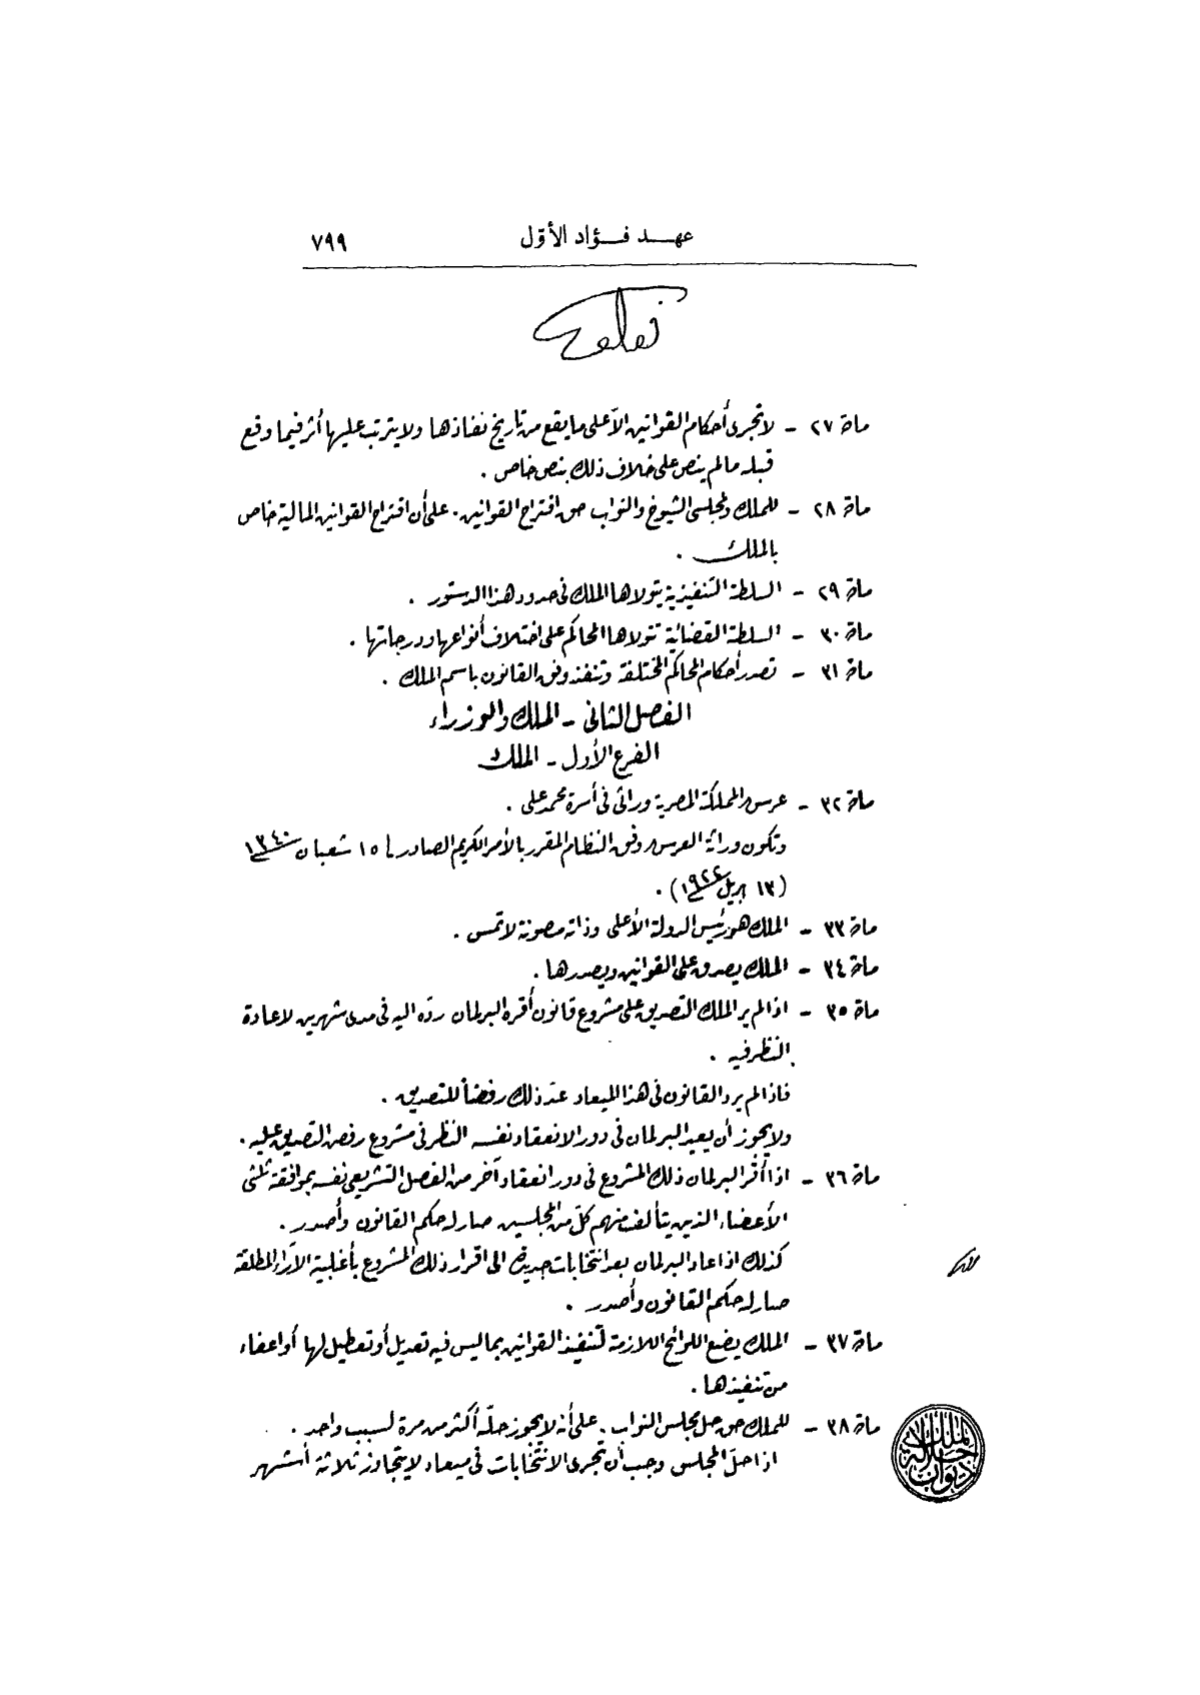 عهد فؤاد الأوّل ٧٩٩
مادة ٢٧ – لا تجرى أحكام القوانين الاّ على ما يقع من تاريخ نفاذها ولا يترتب عليها أثر فيما وقع
قبله ما لم ينص على خلاف ذلك بنص خاص .
مادة ٢٨ – للملك ولمجلسى الشيوخ والنواب حق اقتراح القوانين . على أن اقتراح القوانين المالية خاص
بالملك .
مادة ٢٩ – السلطة التنفيذية يتولاها الملك فى حدود هذا الدستور .
مادة ٣٠ – السلطة القضائية تتولاها المحاكم على اختلاف أنواعها ودرجاتها .
مادة ٣١ – تصدر أحكام المحاكم المختلفة وتنفذ وفق القانون باسم الملك .
الفصل الثانى – الملك والوزراء
الفرع الأول – الملك
مادة ٣٢ – عرش المملكة المصرية وراثى فى أسرة محمد على .
وتكون وراثة العرش وفق النظام المقرر بالأمر الكريم الصادر فى ١٥ شعبان ١٣٤٠
(١٣ ابريل ١٩٢٢) .
مادة ٣٣ – الملك هو رئيس الدولة الأعلى وذاته مصونة لا تمس .
مادة ٣٤ – الملك يصدق على القوانين ويصدرها .
مادة ٣٥ – اذا لم ير الملك التصديق على مشروع قانون أقره البرلمان ردّه اليه فى مدى شهرين لاعادة
النظر فيه .
فاذا لم يرد القانون فى هذا الميعاد عدّ ذلك رفضاً للتصديق .
ولا يجوز أن يعيد البرلمان فى دور الانعقاد نفسه النظر فى مشروع رفض التصديق عليه .
مادة ٣٦ – اذا أقر البرلمان ذلك المشروع فى دور انعقاد آخر من الفصل التشريعى نفسه بموافقة ثلثى
الأعضاء الذين يتألف منهم كلّ من المجلسين صار له حكم القانون وأصدر .
كذلك اذا عاد البرلمان بعد انتخابات جديدة الى اقرار ذلك المشروع بأغلبية الآراء المطلقة
صار له حكم القانون وأصدر .
مادة ٣٧ – الملك يضع اللوائح اللازمة لتنفيذ القوانين بما ليس فيه تعديل أو تعطيل لها أو اعفاء
من تنفيذها .
مادة ٣٨ – للملك حق حل مجلس النواب . على أنه لا يجوز حلّه أكثر من مرة لسبب واحد .
اذا حلّ المجلس وجب أن تجرى الانتخابات فى ميعاد لا يتجاوز ثلاثة أشهر
ديوان جلالة الملك